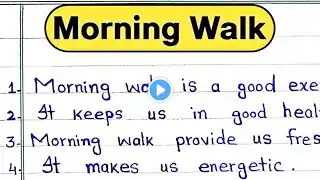 Morning Walk
1- Morning walk is a good exe
2- It keeps us in good heal
3- Morning walk provide us fres
4- It makes us energetic.